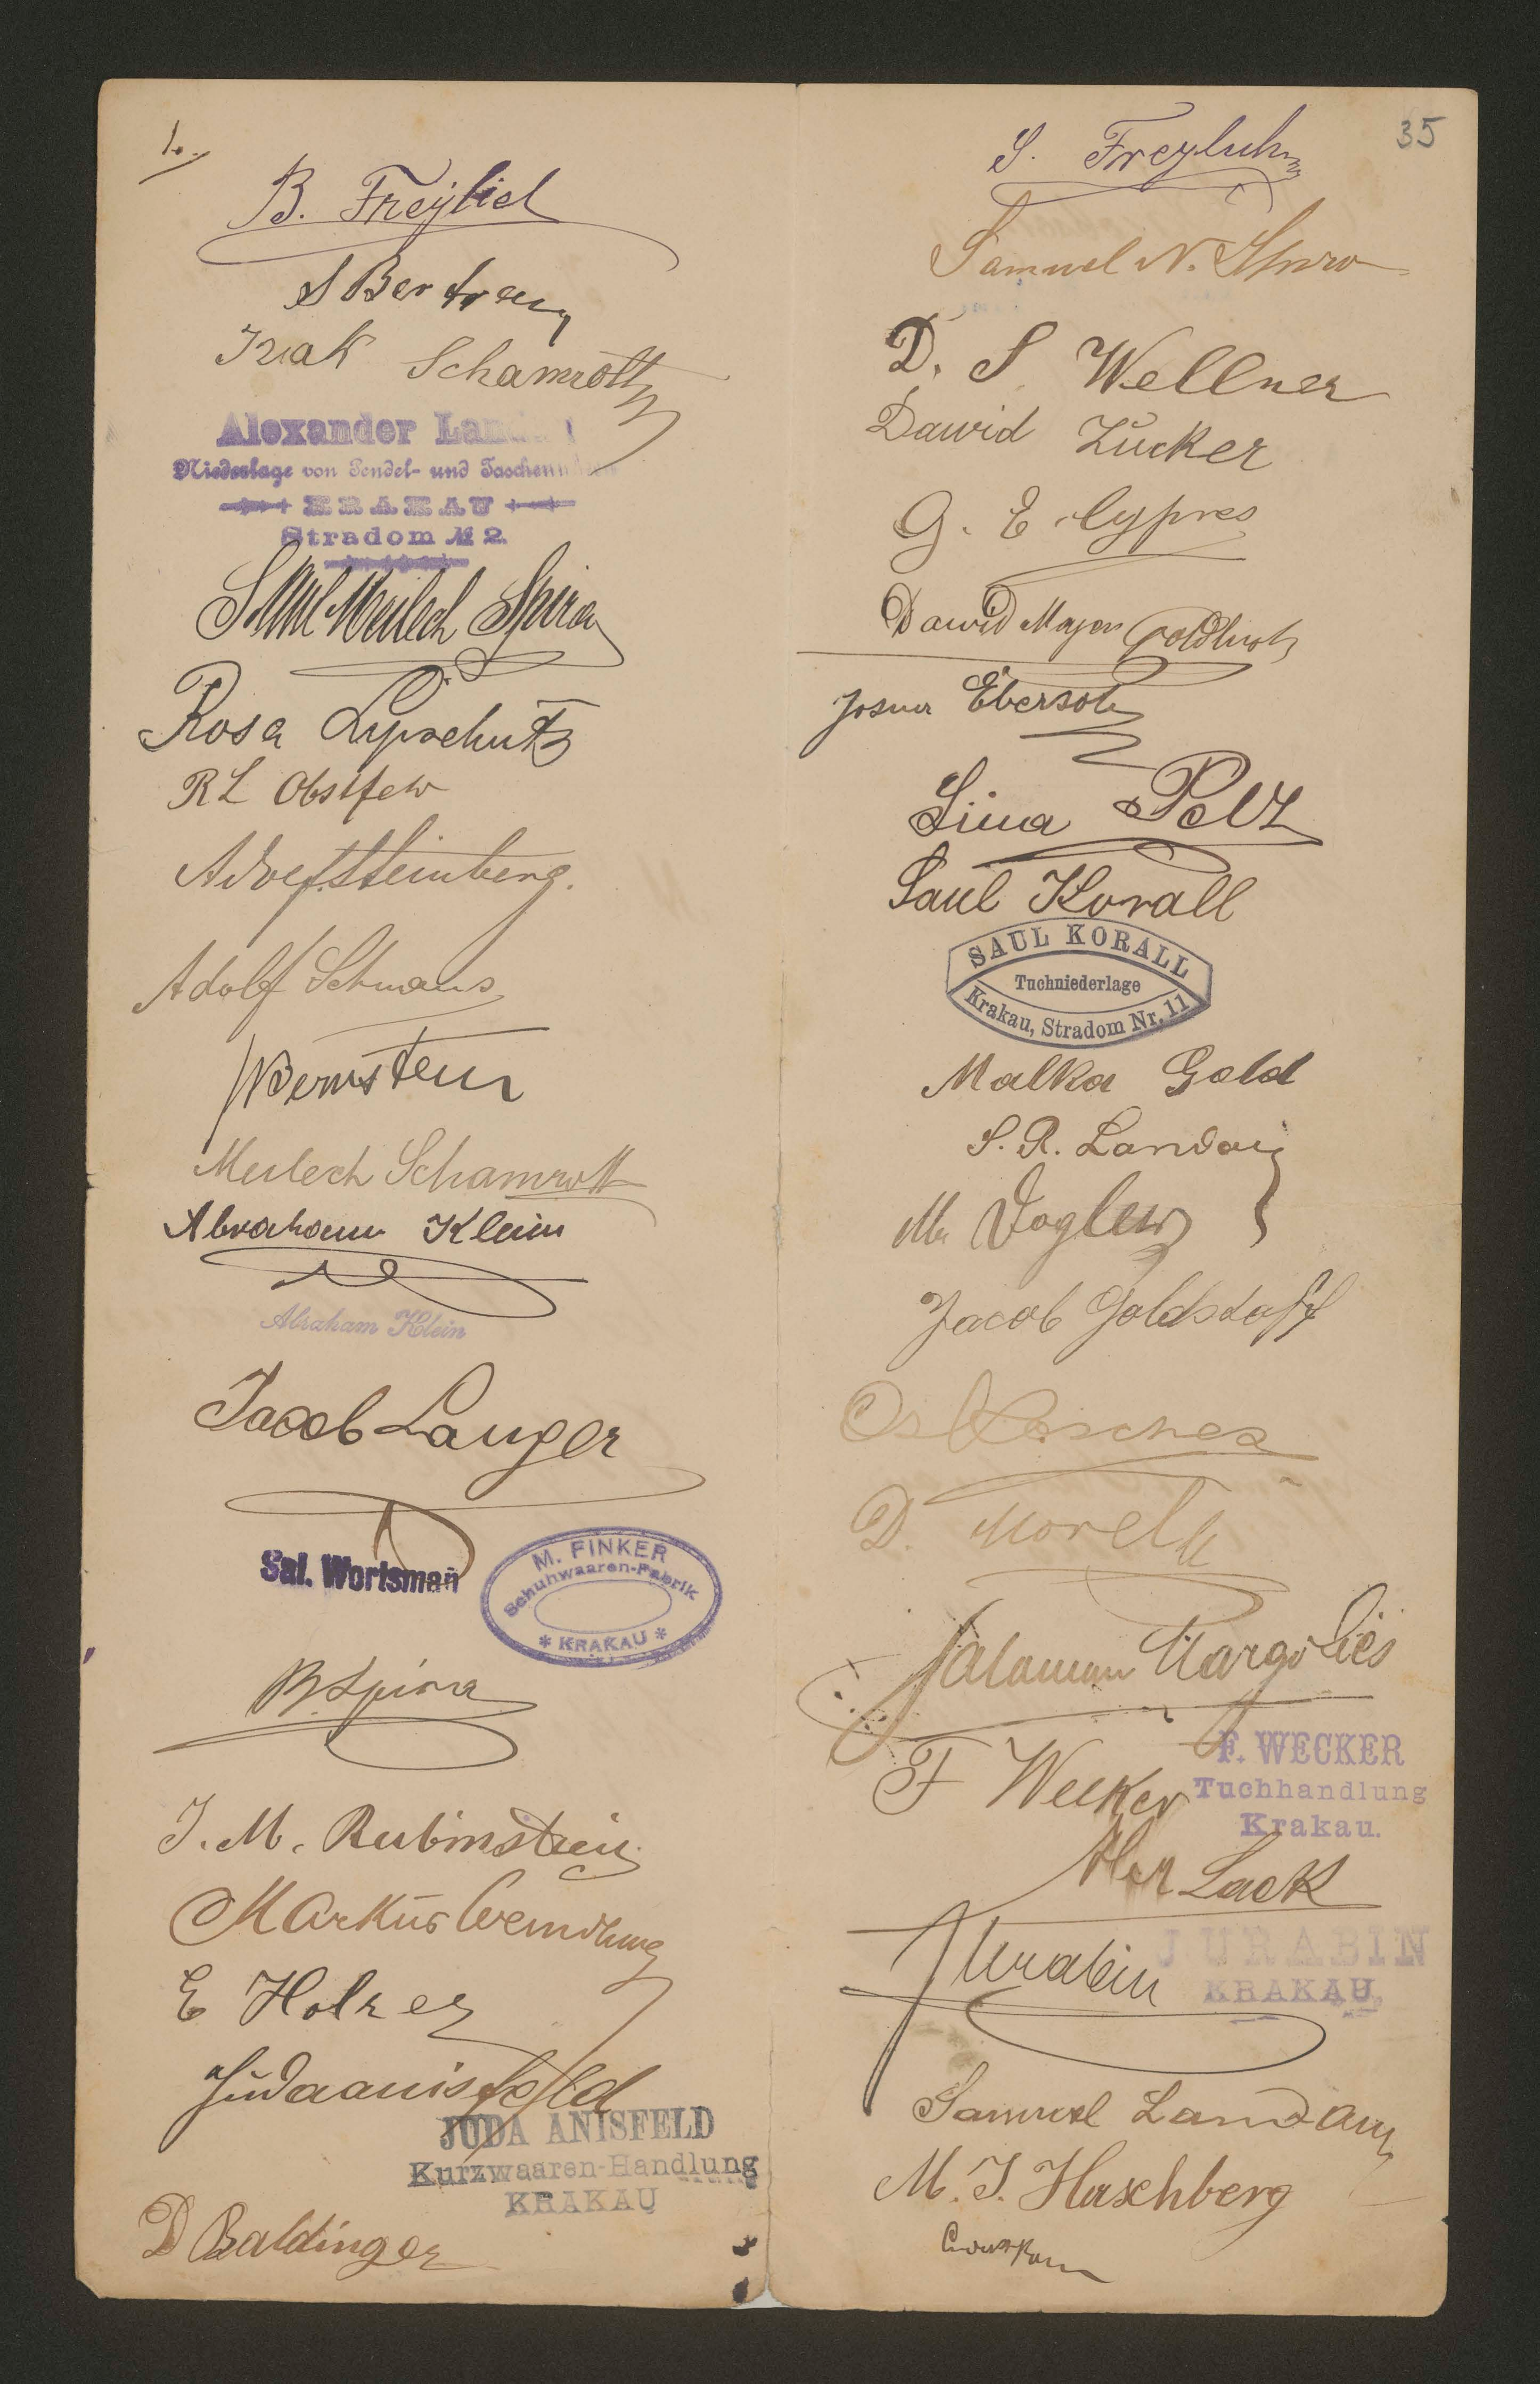 1.
B. Freylich
S Bertram
Izak Schamroth
Alexander
Niederlage von Pendel- und
KRAKAU
Stradom № 2.
Meilech Spira
Rosa Lipschutz
R L Obstfeld
Adolf Steinberg.
Adolf Schwarz
Bernstein
Meilech Schamroth
Abraham Klein
Abraham Klein
Jacob Langer
Sal. Wortsman
M. FINKER
Schuhwaaren-Fabrik
* KRAKAU *
B. Spira
J. M. Rubinstein
Markus
E Holzer
Juda anisfeld
JUDA ANISFELD
Kurzwaaren-Handlung
KRAKAU
D Baldinger
35
S.
Samuel N. Spira
D. S. Wellner
Dawid Zucker
G. E. Cypres
Dawid Mayer
Josua Ebersohn
Sima Pelz
Saul Korall
SAUL KORALL
Tuchniederlage
Krakau, Stradom Nr. 11
Malka Gold
S. R. Landau
M. Vogler
Jacob Goldstoff
D.
Salamon Margolies
F Wecker
F. WECKER
Tuchhandlung
Krakau.
Lack
J Urabin
J URABIN
KRAKAU
Samuel Landau
M. J. Haschberg